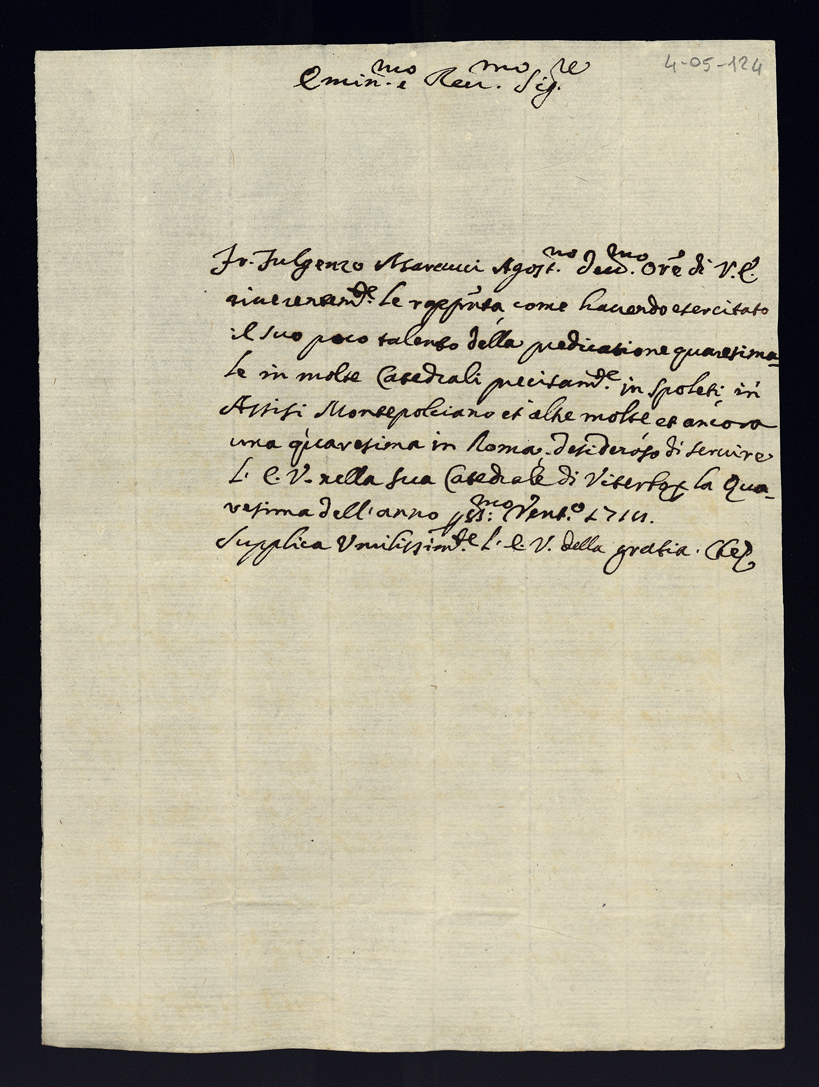 4-05-124
Emin.mo e Reu.mo Sig.re
Fr. Fulgenzo Marcucci Agost.no deu.mo Ore di V. E.
riuerentem.te le rappñta come hauendo esercitato
il suo poco talento della predicatione quaresima-
le in molte Catedrali precisam.te in Spoleti in
Assisi Montepolciano et altre molte et ancora
una quaresima in Roma, desideroso di seruire
l. E. V. nella sua Catedrale di Viterbo la Qua-
resima dell'anno pss.mo vent.o 1711.
Supplica Vmilissim.te l. E. V. della gratia. Che